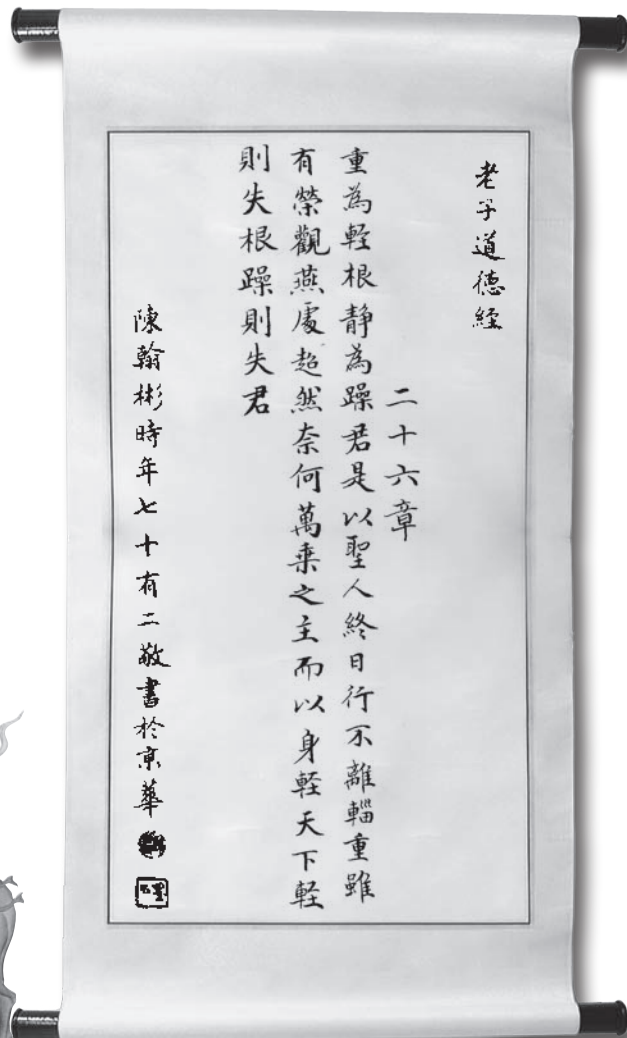 老子道德經
二十六章
重為軽根静為躁君是以聖人終日行不離輜重雖
有榮觀燕處超然奈何萬乗之主而以身軽天下軽
則失根躁則失君
陳翰彬時年七十有二敬書於京華